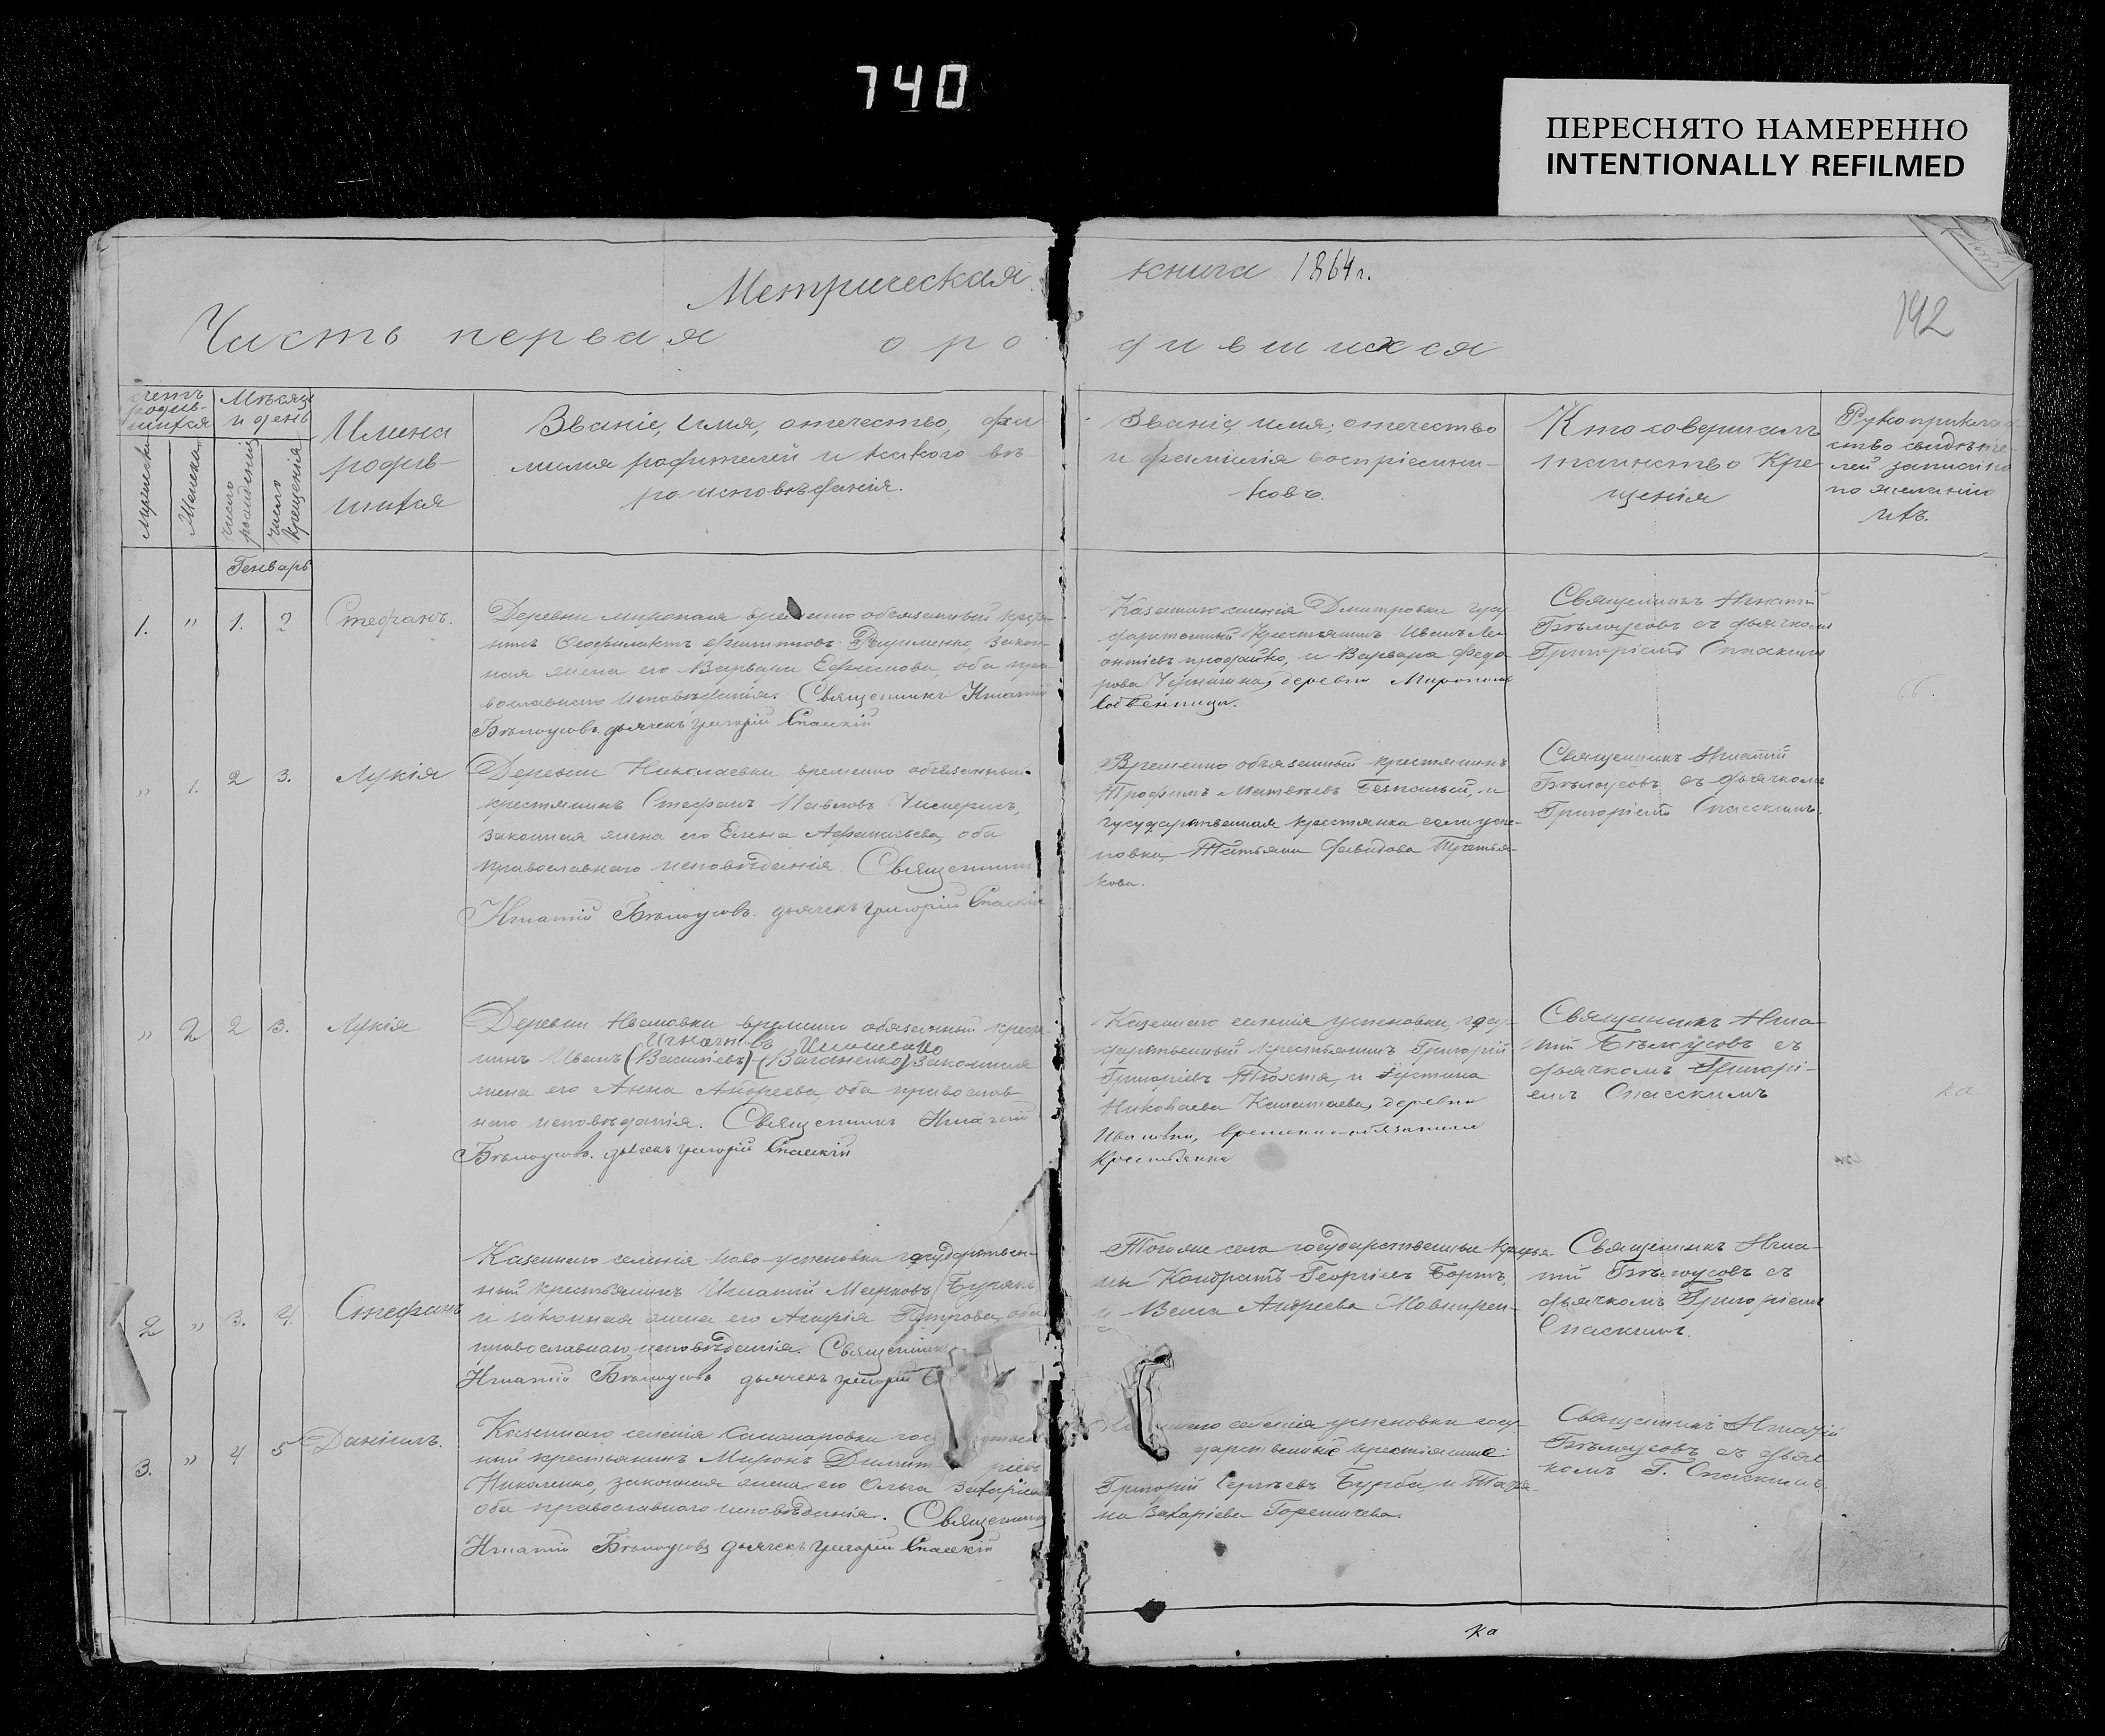 740
ПЕРЕСНЯТО НАМЕРЕННО
INTENTIONALLY REFILMED
Метрическая книга 1864 г.
192
Часть первая о родившихся
Счетъ родив-
шихся
Мѣсяцъ
и день
Мужеска
Женска
Число
рожденія
Число
крещенія
Имена
родив-
шихся
Званіе, имя, отечество, фа-
милія родителей и какого вѣ-
роисповѣданія.
Званіе, имя, отечество
и фамилія воспріемни-
ковъ.
Кто совершалъ
таинство Кре-
щенія
Рукоприклад
ство свидѣте-
лей записи
по желанію
ихъ.
Генварь
1. " 1. 2
Стефанъ.
Деревни Мирополя временно обязанный кресть-
нинъ Филиповъ закон-
ная жена его Варвара Ефимова, оба пра-
вославнаго исповѣданія. Священникъ Игнатій
Бѣлоусовъ. дьячекъ Григорій Спасскій
Казеннаго селенія Дмитровки госу-
дарственный крестьянинъ Иванъ Ле-
онтіевъ и Варвара Федо-
рова деревни Мирополя
Священникъ Игнатій
Бѣлоусовъ съ дьячкомъ
Григоріемъ Спаскимъ
" 1. 2 3.
Лукія
Деревни Николаевки временно обязанный
крестьянинъ Стефанъ Павловъ
законная жена его Елена Афанасьева, оба
православнаго исповѣданія. Священникъ
Игнатій Бѣлоусовъ. дьячекъ Григорій Спасскій
Временно обязанный крестьянинъ
Трофимъ Матвѣевъ Безпалый, и
государственная крестьянка села Успе-
новки Татьяна Давидова Третья-
кова.
Священникъ Игнатій
Бѣлоусовъ съ дьячкомъ
Григоріемъ Спасскимъ.
" 2 2 3.
Лукія
Деревни Ивановки временно обязанный кресть
Игнатіевъ
нинъ Иванъ (Василіевъ) (Ваганенко) законная
жена его Анна Андреева, оба православ
наго исповѣданія. Священникъ Игнатій
Бѣлоусовъ. дьячекъ Григорій Спасскій
Казеннаго селенія Успеновки, госу-
дарственный крестьянинъ Григорій
Григоріевъ и Іустина
Николаева деревни
Ивановки, временно-обязанная
крестьянка
Священникъ Игна-
тій Бѣлоусовъ съ
дьячкомъ Григорі-
емъ Спасскимъ
ка
2 " 3. 4.
Стефанъ
Казеннаго селенія Ново-успеновки государствен-
ный крестьянинъ Игнатій Марковъ Бурякъ
и законная жена его Агафія Петрова, оба
православнаго исповѣданія. Священникъ
Игнатій Бѣлоусовъ дьячекъ Григорій
Тогоже села государственные крестья
ны Кондратъ Георгіевъ Бортъ,
и Андреева
Священникъ Игна-
тій Бѣлоусовъ съ
дьячкомъ Григоріемъ
Спаскимъ.
3. " 4 5
Даніилъ.
Казеннаго селенія
ный крестьянинъ Миронъ Димит ріевъ
Николенко, законная жена его Ольга Захаріева
оба православнаго исповѣданія. Священникъ
Игнатій Бѣлоусовъ дьячекъ Григорій Спасскій
селенія Успеновки госу-
дарственные крестьяне:
Григорій Сергѣевъ и Татья-
на Захаріева
Священникъ Игнатій
Бѣлоусовъ съ дьяч
комъ Г. Спаскимъ.
ка